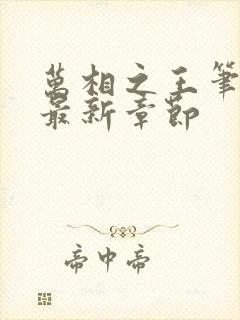 萬相之王筆
最新章節
帝中帝